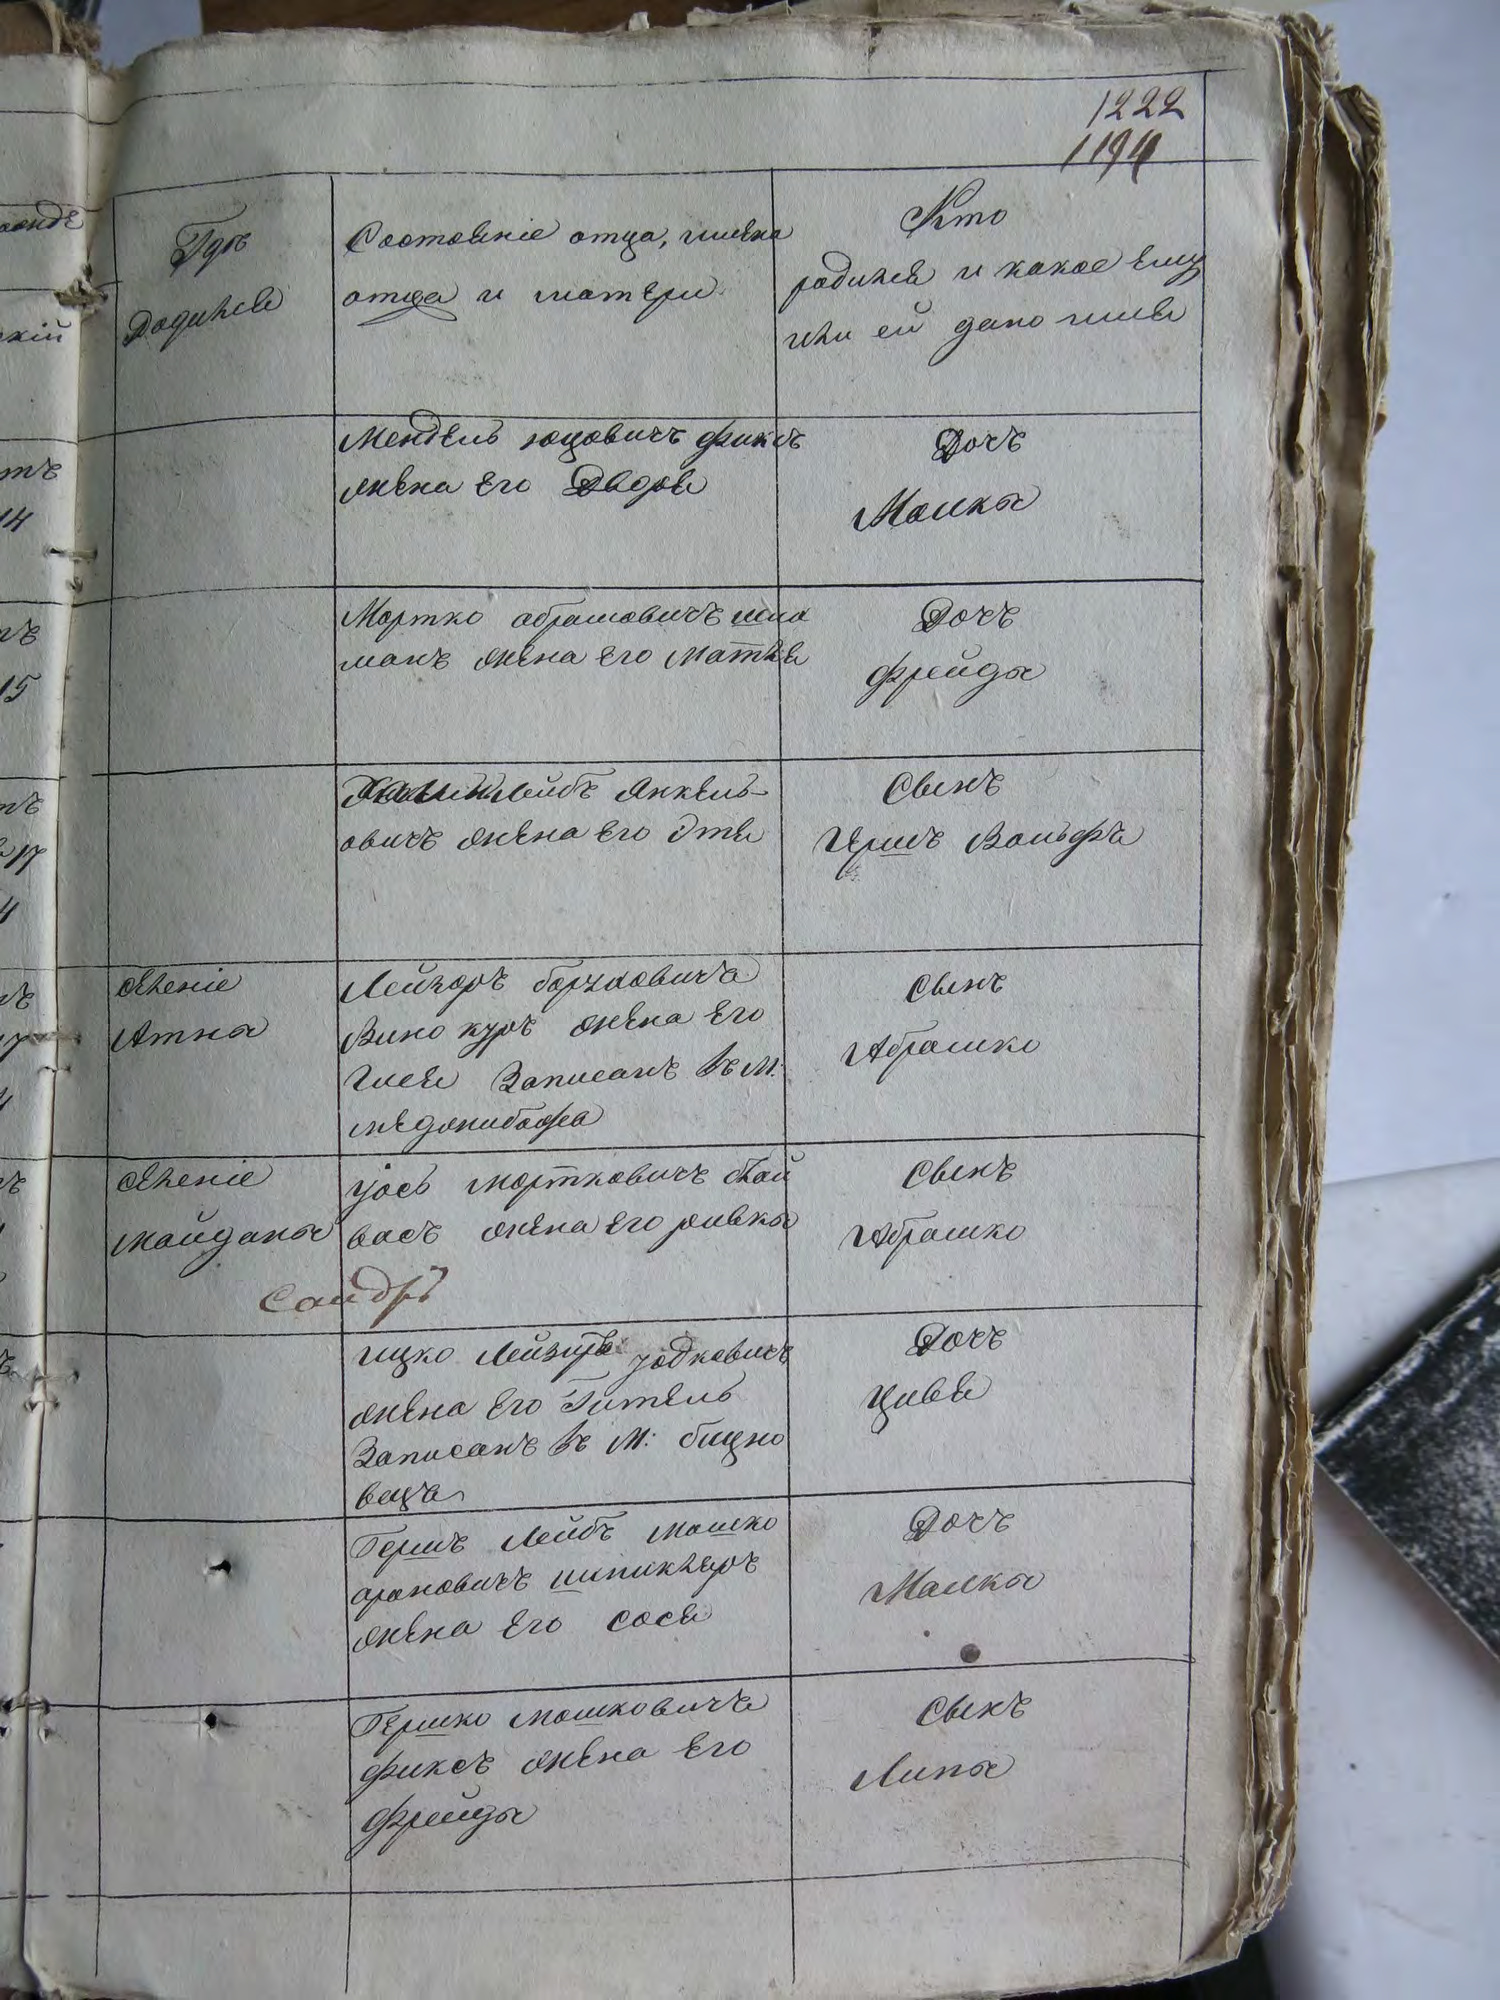 1222
1194
Гдѣ
родился
Состояніе отца, имена
отца и матери
Кто
родился и какое ему
или ей дано имя
Мендель юцовичъ фиксъ
жена его Двора
Дочь
Малка
Мортко абрамовичъ шмо
манъ жена его матля
Дочь
фрейда
лейбъ Янкель-
овичъ жена его Этя
Сынъ
Гершъ Вольфъ
Атна
Лейзоръ боруховичъ
Винокуръ жена его
Гися Записанъ въ М:
межибожа
Сынъ
Абрашко
Майдана
іось мортковичъ бай
васъ жена его ривка
Сынъ
Абрашко
Сандръ
ицко Лейзеръ іодковичъ
жена его Гитель
Записанъ въ М: бицно
вецъ
Дочь
Цивя
Гершъ Лейбъ мошко
ароновичъ шпиклеръ
жена его сося
Дочь
Малка
Гершко мошковичъ
фиксъ жена его
фрейда
Сынъ
Липа
кій
14
15
17